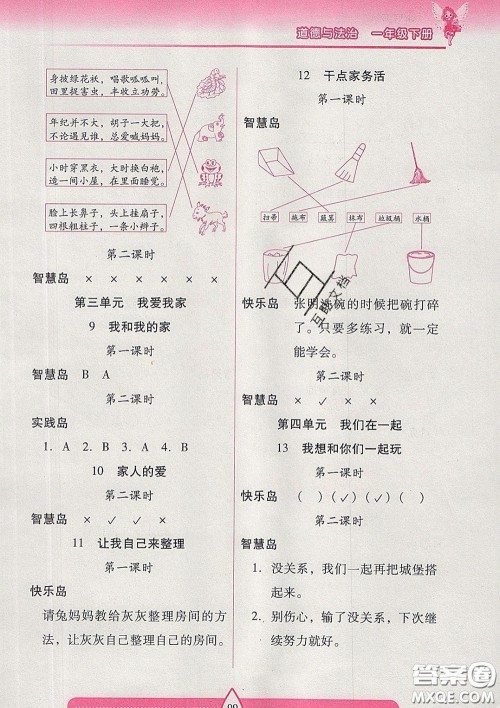 道德与法治 一年级下册
身披绿花袄，唱歌呱呱叫，
田里捉害虫，丰收立功劳。
年纪并不大，胡子一大把，
不论遇见谁，总爱喊妈妈。
小时穿黑衣，大时换白袍，
造一间小屋，在里面睡觉。
脸上长鼻子，头上挂扇子，
四根粗柱子，一条小辫子。
第二课时
智慧岛 × × × × × ×
第三单元 我爱我家
9 我和我的家
第一课时
智慧岛 B A
第二课时
实践岛
1. A 2. B 3. A 4. B
10 家人的爱
第二课时
智慧岛 × ✓ ✓ ×
11 让我自己来整理
第一课时
快乐岛
请兔妈妈教给灰灰整理房间的方
法，让灰灰自己整理自己的房间。
12 干点家务活
第一课时
智慧岛
扫帚 拖布 簸箕 抹布 垃圾桶 水桶
快乐岛 张明洗碗的时候把碗打碎
了。只要多练习，就一定
能学会。
第二课时
智慧岛 × ✓ ✓ ×
第四单元 我们在一起
13 我想和你们一起玩
第一课时
快乐岛 ( ) (✓) (✓) ( )
第二课时
智慧岛
1. 没关系，我们一起再把城堡搭
起来。
2. 别伤心，输了没关系，下次继
续努力就好。
互助文档
答案圈
MXQE.COM